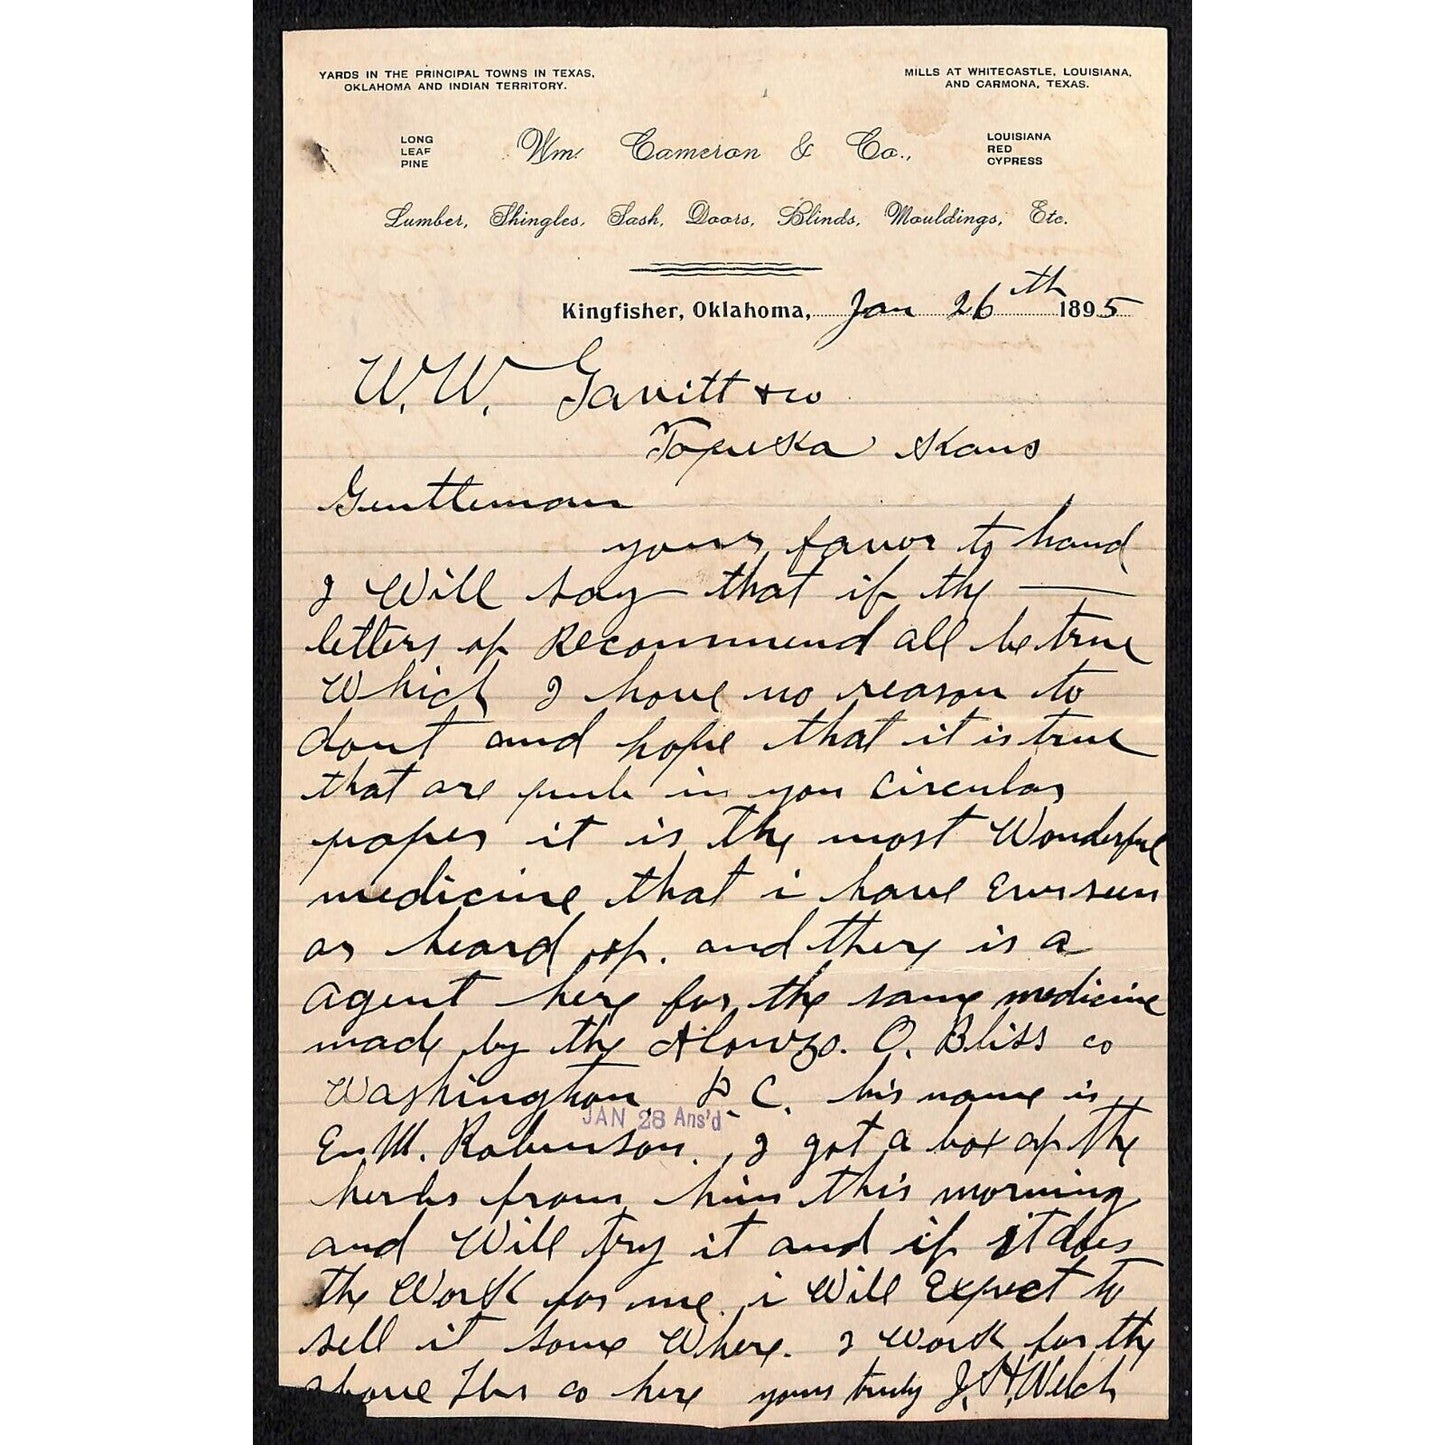 YARDS IN THE PRINCIPAL TOWNS IN TEXAS,
OKLAHOMA AND INDIAN TERRITORY.
MILLS AT WHITECASTLE, LOUISIANA,
AND CARMONA, TEXAS.
LONG
LEAF
PINE
Wm. Cameron & Co.,
LOUISIANA
RED
CYPRESS
Lumber, Shingles, Sash, Doors, Blinds, Mouldings, Etc.
Kingfisher, Oklahoma, Jan 26th 1895
W. W. Gavitt & co
Topeka Kans
Gentleman
yours favor to hand
I Will say that if the
letters of Recommend all be true
Which I have no reason to
dout and hope that it is true
that are pub in you circular
paper it is the most Wonderful
medicine that i have Ever seen
or heard of. and there is a
agent here for the same medicine
made by the Alonzo. O. Bliss co
Washington, D. C. his name is
JAN 28 Ans'd
M. Robinson. I got a box of the
herbs from him this morning
and Will try it and if it does
the Work for me. i Will Expect to
sell it some Where. I work for the
above Lbr co here yours truly J. H. Welch